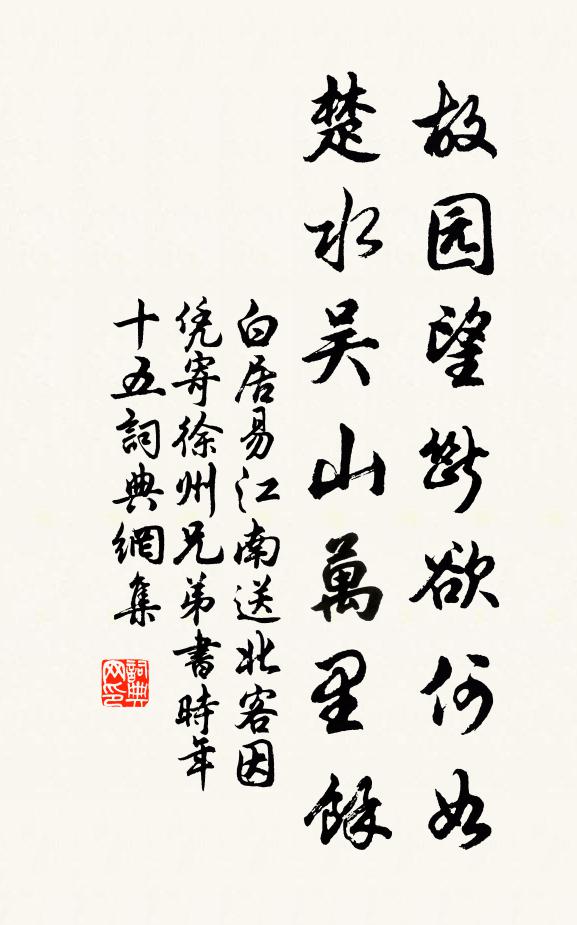 故园望斷欲何如
楚水吴山萬里餘
白居易江南送北客因
凭寄徐州兄弟書時年
十五詞典網集
詞典
网印